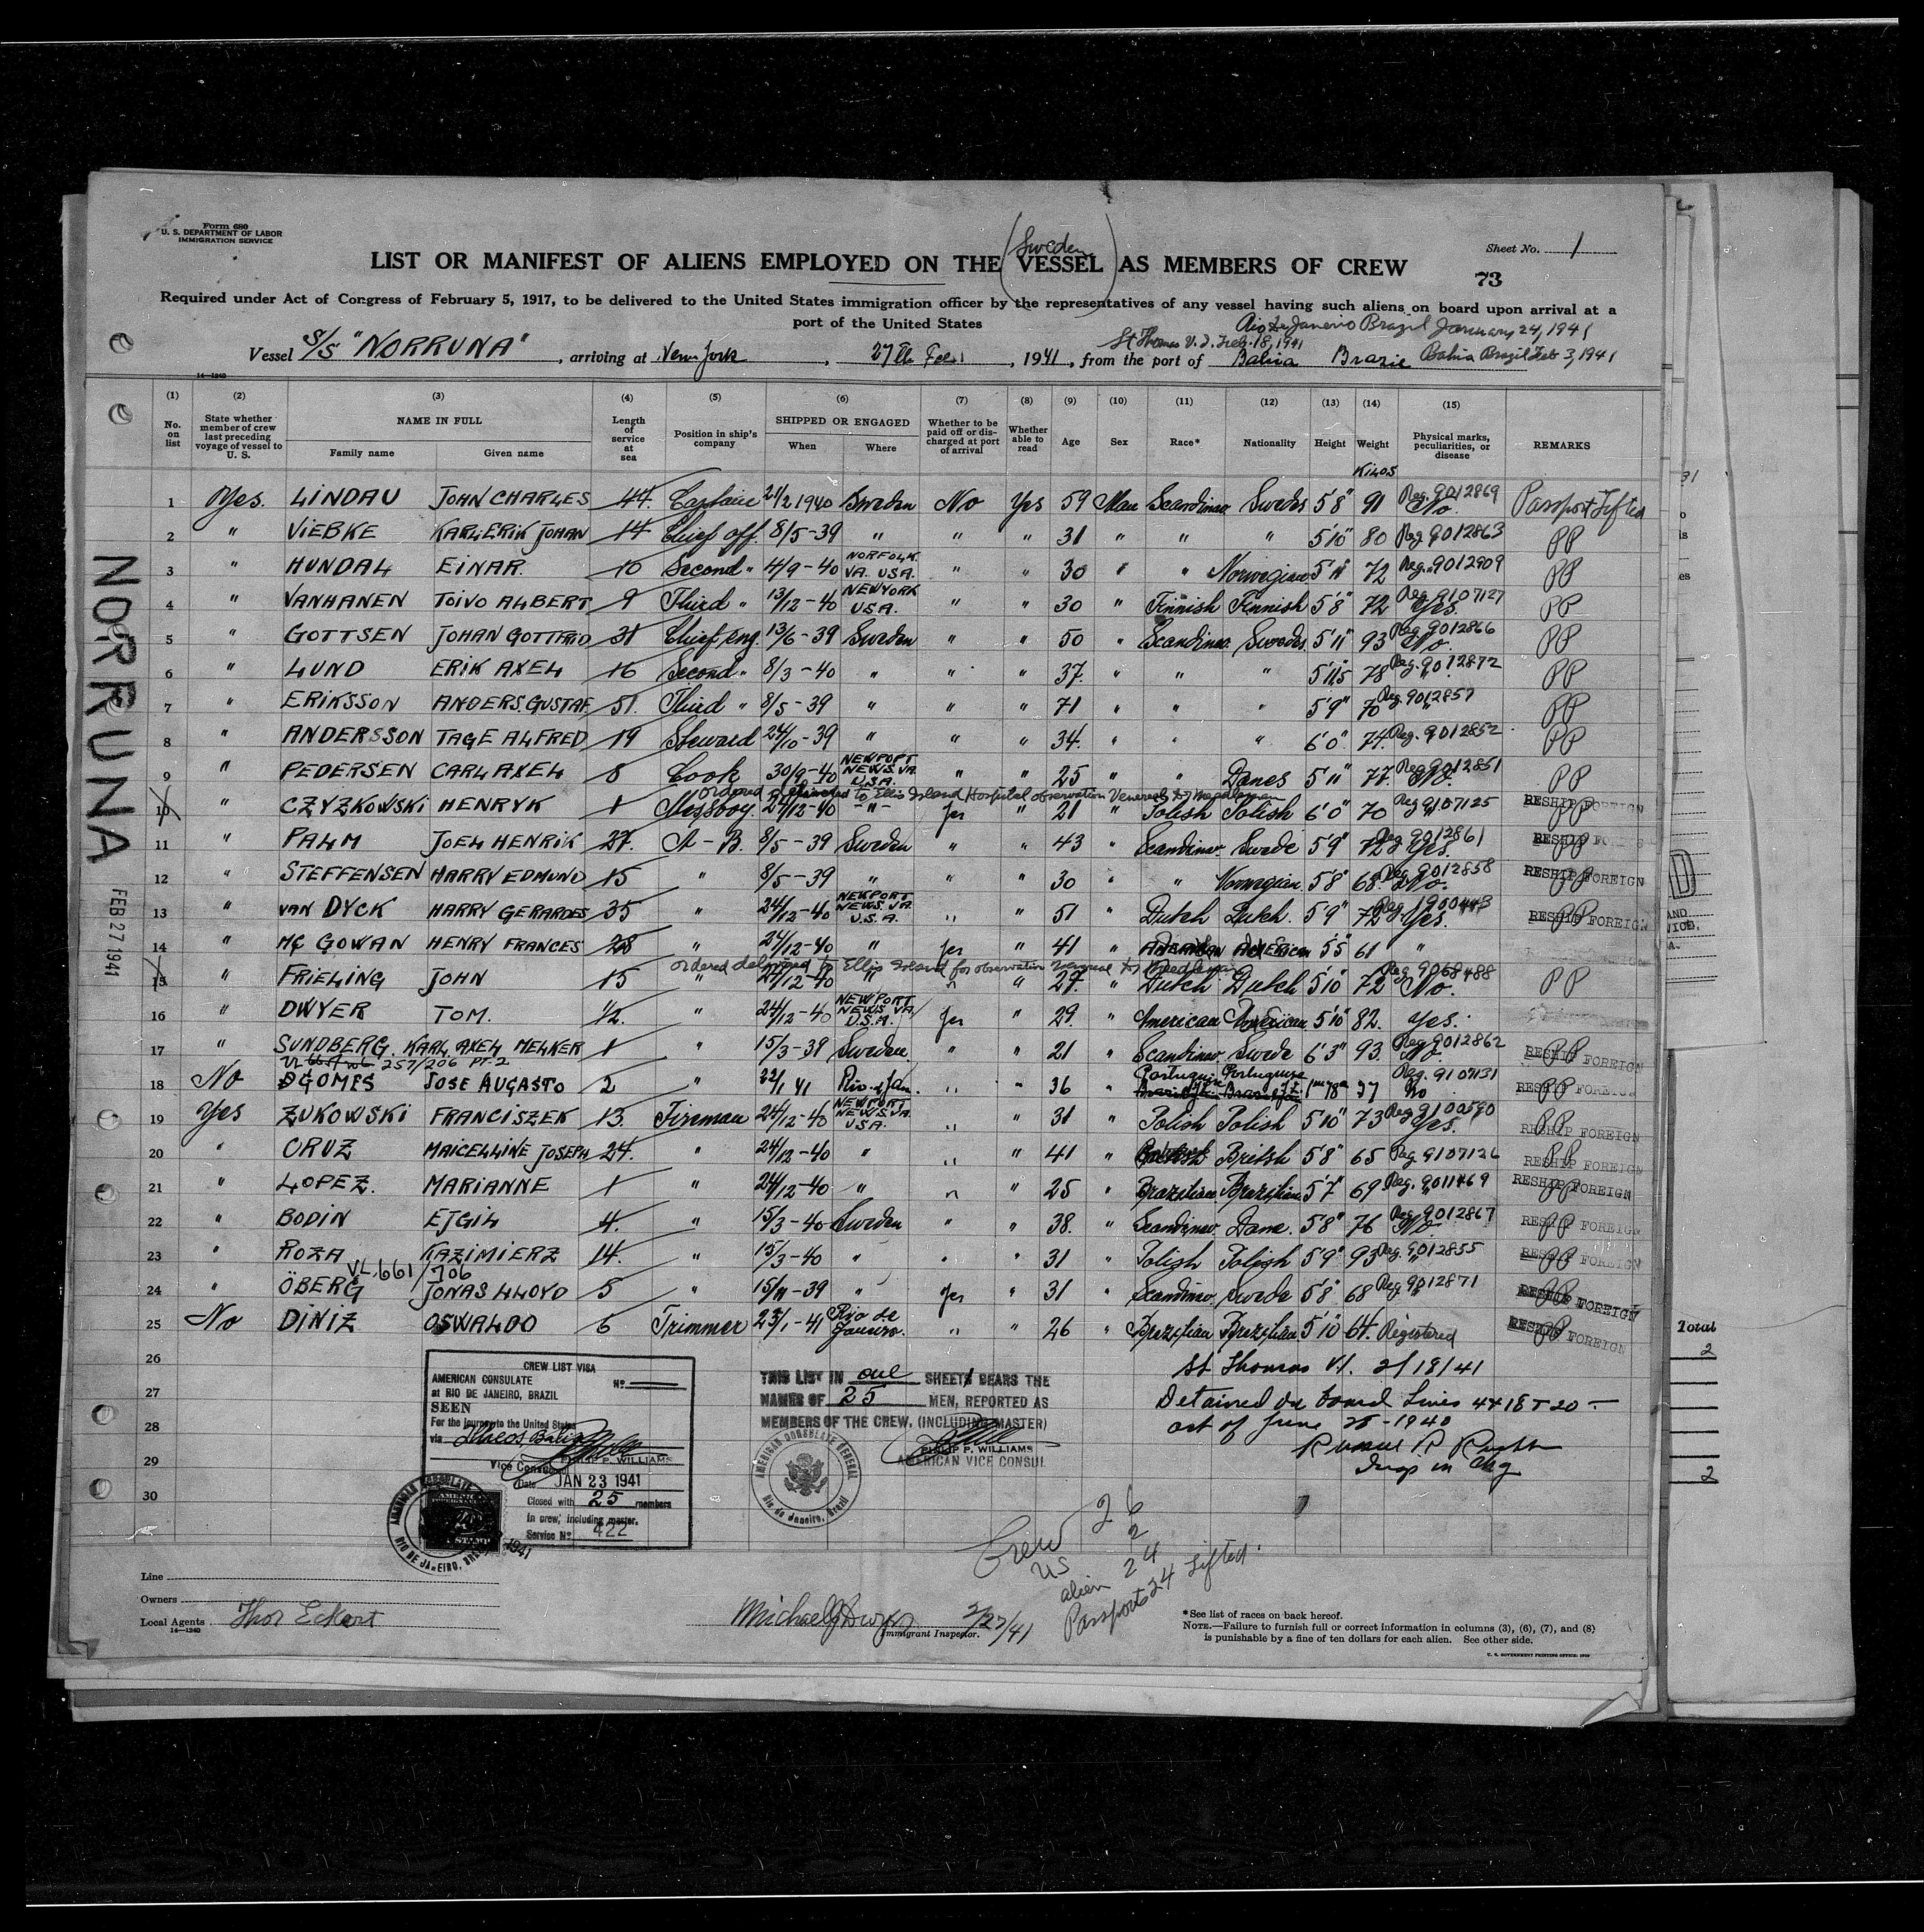 Form 680
U. S. DEPARTMENT OF LABOR
IMMIGRATION SERVICE
Sheet No. 1
(Sweden)
LIST OR MANIFEST OF ALIENS EMPLOYED ON THE VESSEL AS MEMBERS OF CREW
73
Required under Act of Congress of February 5, 1917, to be delivered to the United States immigration officer by the representatives of any vessel having such aliens on board upon arrival at a
port of the United States
Rio De Janerio Brazil January 24, 1941
St Thomas V. I. Feb. 18, 1941
Vessel S/S "NORRUNA", arriving at New York, 27th Feb, 1941, from the port of Bahia Brazil Bahia Brazil Feb 3, 1941
14—1240
(1) (2) (3) (4) (5) (6) (7) (8) (9) (10) (11) (12) (13) (14) (15)
No. on list
State whether member of crew last preceding voyage of vessel to U. S.
NAME IN FULL
Family name Given name
Length of service at sea
Position in ship's company
SHIPPED OR ENGAGED
When Where
Whether to be paid off or discharged at port of arrival
Whether able to read
Age Sex Race* Nationality Height Weight
Physical marks, peculiarities, or disease
REMARKS
KILOS
1 Yes. LINDAU JOHN CHARLES 44. Captain 21/2 1940 Sweden No Yes 59 Man Scandinav. Swedes 5'8" 91 Reg. 9012869 No. Passport Lifted
2 " VIEBKE KARL ERIK JOHAN 14 Chief off. 8/5-39 " " " 31 " " " 5'10" 80 Reg 9012863 PP
3 " HUNDAL EINAR. 10 Second " 4/9-40 NORFOLK. VA. USA. " " 30 " " Norwegian 5'11" 72 Reg. 9012909 PP
4 " VANHANEN TOIVO ALBERT 9 Third " 13/12-40 NEWYORK USA. " " 30 " Finnish Finnish 5'8" 72 Reg 9107127 Yes. PP
5 " GOTTSEN JOHAN GOTTFRID 31 Chief eng. 13/6-39 Sweden " " 50 " Scandinav. Swedes 5'11" 93 Reg. 9012866 No. PP
6 " LUND ERIK AXEL 16 Second " 8/3-40 " " " 37. " " " 5'11,5 78 Reg. 9012872 " PP
7 " ERIKSSON ANDERS. GUSTAF. 51. Third " 8/5-39 " " " 71 " " " 5'9" 70 Reg. 9012857 " PP
8 " ANDERSSON TAGE ALFRED 19 Steward 24/10-39 " " " 34. " " " 6'0" 74. Reg. 9012852 PP
9 " PEDERSEN CARL AXEL 8 Cook 30/9-40 NEWPORT NEWS. VA. U.S.A. " " 25 " " Danes 5'11" 77. Reg 9012851 No. PP
ordered to Ellis Island Hospital observation Venereal
10 " CZYZKOWSKI HENRYK 1 Messboy. 24/12-40 " Yes " 21 " Polish Polish 6'0" 70 Reg 9107125 " PP RESHIP FOREIGN
11 " PALM JOEL HENRIK 27. A-B. 8/5-39 Sweden " " 43 " Scandinav. Swede 5'9" 72 Reg 9012861 Yes. PP RESHIP FOREIGN
12 " STEFFENSEN HARRY EDMUND 15 " 8/5-39 " " " 30 " " Norwegian. 5'8" 68 Reg 9012858 No. PP RESHIP FOREIGN
13 " VAN DYCK HARRY GERARDES 35 " 24/12-40 NEWPORT NEWS. VA. U.S.A. " " 51 " Dutch Dutch. 5'9" 72 Reg 1900443 Yes. PP RESHIP FOREIGN
14 " Mc GOWAN HENRY FRANCES 28 " 24/12-40 " Yes " 41 " American American 5'5" 61 "
ordered delivered to Ellis Island for observation
15 " FRIELING JOHN 15 " 24/12-40 " " " 27. " Dutch Dutch 5'10" 72 Reg 9068488 No. PP
16 " DWYER TOM. 1/2. " 24/12-40 NEWPORT NEWS. VA. U.S.A. Yes " 29. " American American. 5'10" 82. Yes.
17 " SUNDBERG. KARL. AXEL MELKER 1 " 15/3-39 Sweden. " " 21 " Scandinav. Swede 6'3" 93. Reg 9012862 No. PP RESHIP FOREIGN
257/206 PT 2
18 No GOMES JOSE AUGASTO 2 " 22/1 41 Rio d Jan. " " 36 " Portuguese Portuguese 1m 78 Reg. 9107131 No PP RESHIP FOREIGN
19 Yes ZUKOWSKI FRANCISZEK 13. Fireman 24/12-40 NEWPORT NEWS. VA. USA. " 31 " Polish Polish 5'10" 73 Reg 9100590 Yes. PP RESHIP FOREIGN
20 " CRUZ MAICELLINE JOSEPH 24. " 24/12-40 " " " 41 " British 5'8" 65 Reg 9107126 PP RESHIP FOREIGN
21 " LOPEZ. MARIANNE 1 " 24/12-40 " " " 25 " Brazilian Brazilian 5'7" 69 Reg. 9011469 PP RESHIP FOREIGN
22 " BODIN EJGIL 4. " 15/3-40 Sweden " " 38. " Scandinav. Dane. 5'8" 76 Reg 9012867 No PP RESHIP FOREIGN
23 " ROZA KAZIMIERZ 14. " 15/3-40 " " " 31 " Polish Polish 5'9" 93 Reg. 9012855 PP RESHIP FOREIGN
VL. 661/706
24 " ÖBERG JONAS LLOYD 5 " 15/11-39 " Yes " 31 " Scandinav. Swede 5'8" 68 Reg 9012871 PP RESHIP FOREIGN
25 No DINIZ OSWALDO 6 Trimmer 23/1-41 Rio de Janeiro. " " 26 " Brazilian Brazilian 5'10" 64. Registered PP RESHIP FOREIGN
26
27
28
29
30
CREW LIST VISA
AMERICAN CONSULATE No.
at RIO DE JANEIRO, BRAZIL
SEEN
For the journey to the United States
via Ilheos, Bahia
PHILIP P. WILLIAMS
Vice Consul
Date JAN 23 1941
Closed with 25 members
in crew, including master.
Service No. 422
AMERICAN CONSULATE
RIO DE JANEIRO, BRAZIL
1941
THIS LIST IN one SHEET BEARS THE
NAMES OF 25 MEN, REPORTED AS
MEMBERS OF THE CREW, (INCLUDING MASTER)
PHILIP P. WILLIAMS
AMERICAN VICE CONSUL
AMERICAN CONSULATE GENERAL
Rio de Janeiro, Brazil
St Thomas V.I. 2/18/41
Detained on board Lines 4 + 18 + 20 —
act of June 28-1940
Insp in Chg
Crew 26
US 2
alien 24
Passports 24 Lifted
Line
Owners
Local Agents Thor Eckert
14—1240
Michael J Dwyer 2/27/41
Immigrant Inspector.
*See list of races on back hereof.
NOTE.—Failure to furnish full or correct information in columns (3), (6), (7), and (8)
is punishable by a fine of ten dollars for each alien. See other side.
U. S. GOVERNMENT PRINTING OFFICE
NORRUNA
FEB 27 1941
Total
2
2